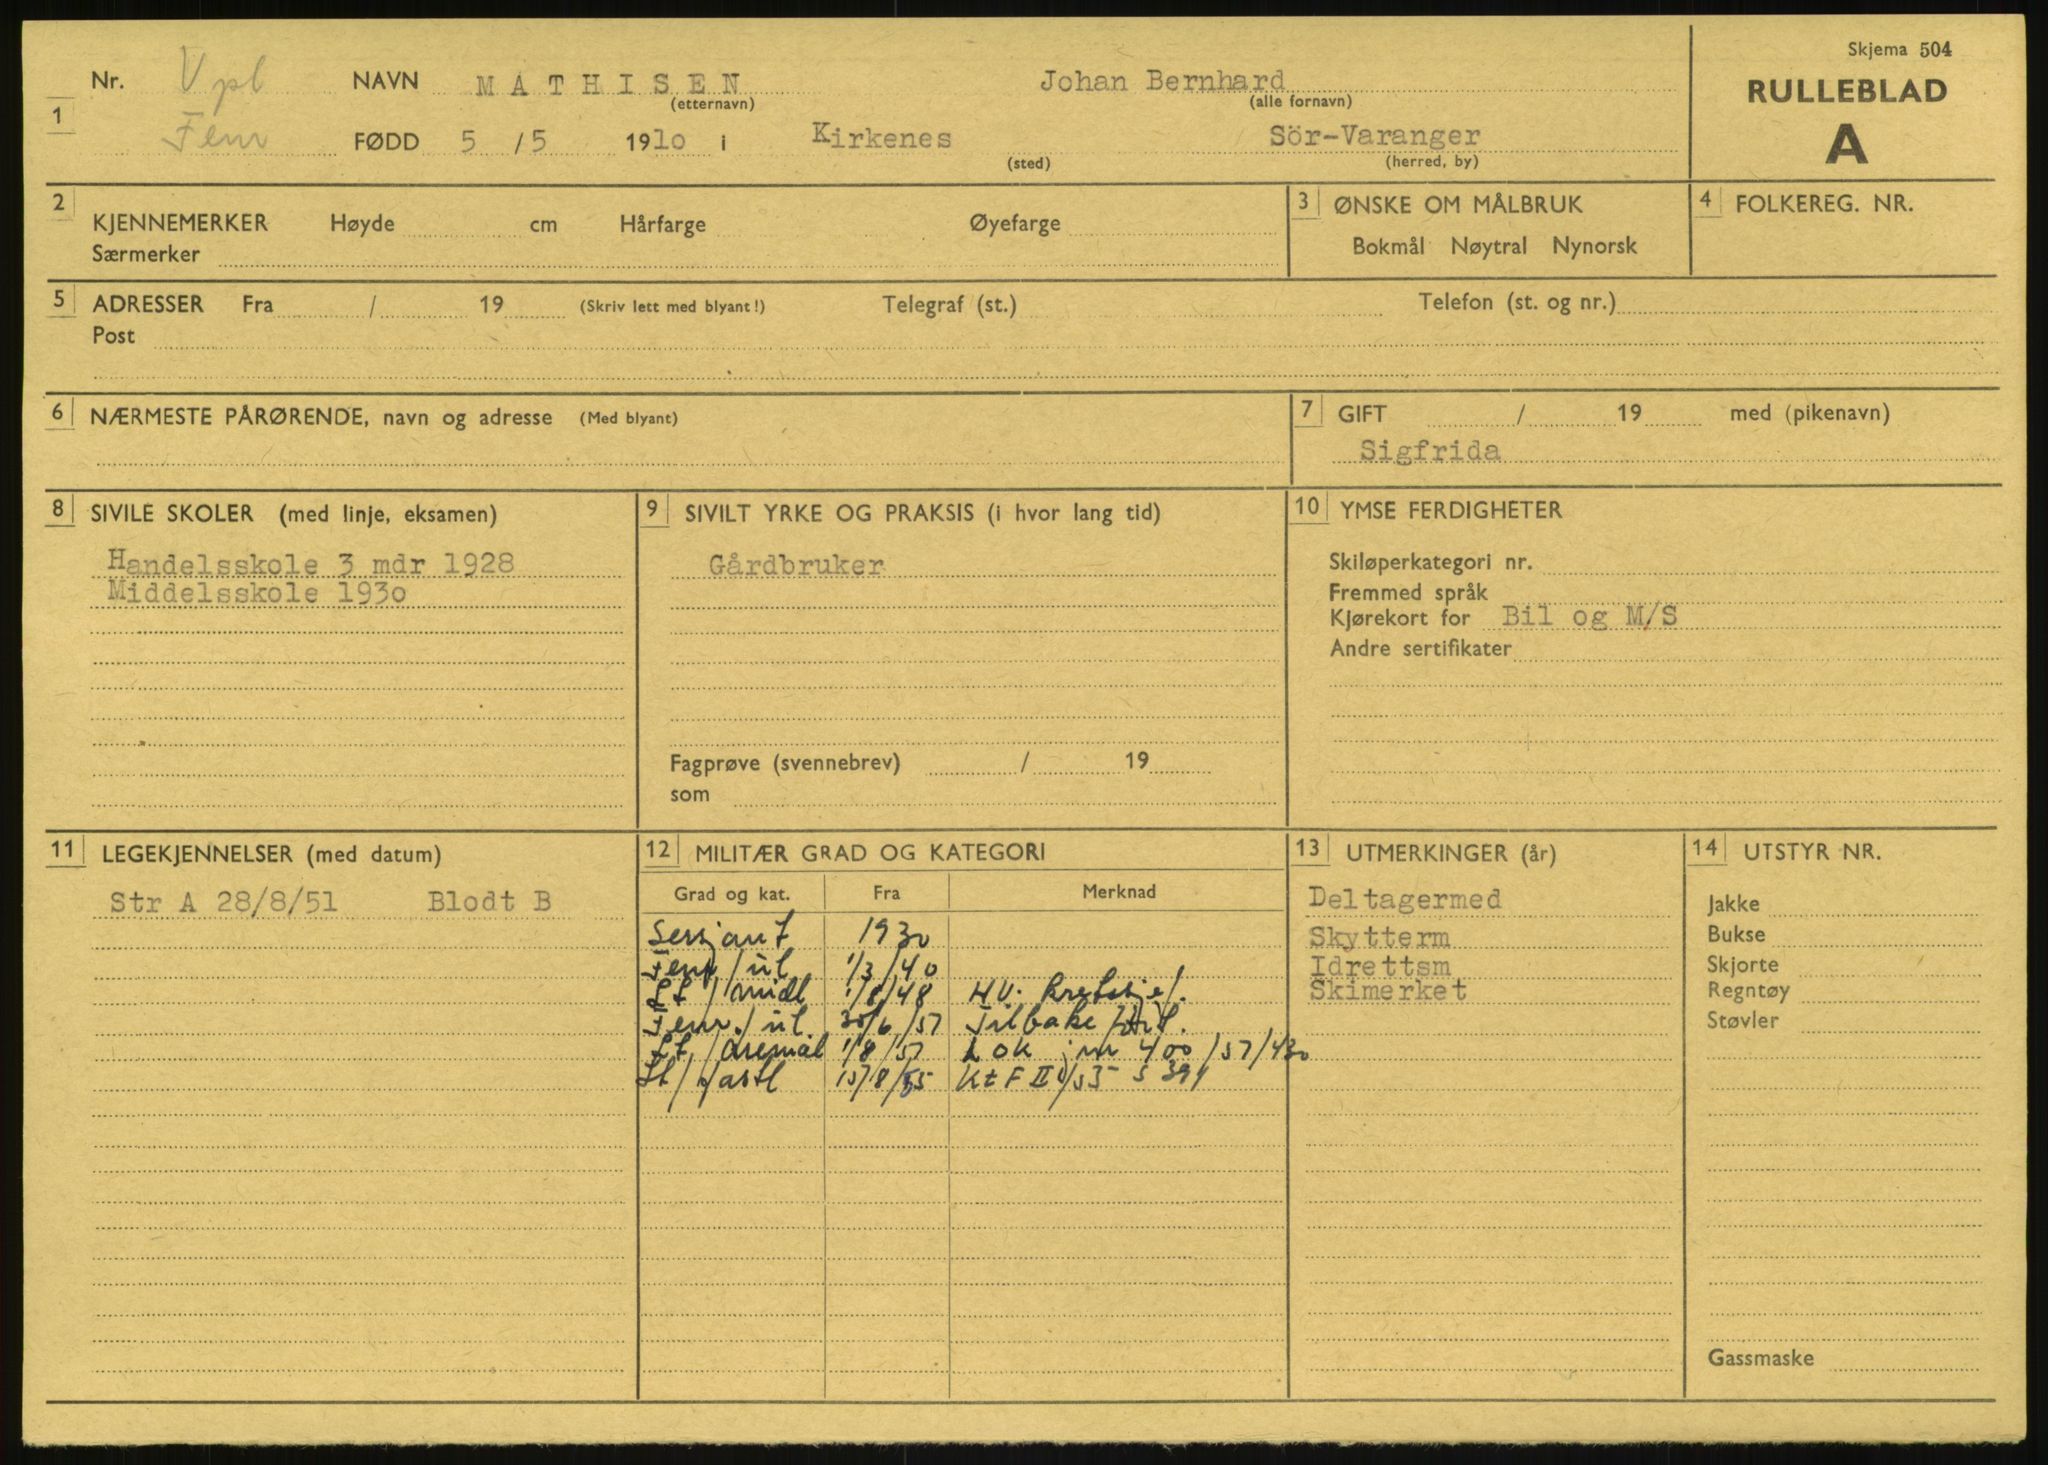 Skjema 504
RULLEBLAD
A
1 Nr. Vpl NAVN MATHISEN Johan Bernhard
(etternavn) (alle fornavn)
Fenr FØDD 5 / 5 1910 i Kirkenes Sör-Varanger
(sted) (herred, by)
2 KJENNEMERKER Høyde cm Hårfarge Øyefarge
Særmerker
3 ØNSKE OM MÅLBRUK
Bokmål Nøytral Nynorsk
4 FOLKEREG. NR.
5 ADRESSER Fra / 19 (Skriv lett med blyant!) Telegraf (st.) Telefon (st. og nr.)
Post
6 NÆRMESTE PÅRØRENDE, navn og adresse (Med blyant)
7 GIFT / 19 med (pikenavn)
Sigfrida
8 SIVILE SKOLER (med linje, eksamen)
Handelsskole 3 mdr 1928
Middelsskole 1930
9 SIVILT YRKE OG PRAKSIS (i hvor lang tid)
Gårdbruker
Fagprøve (svennebrev) / 19
som
10 YMSE FERDIGHETER
Skiløperkategori nr.
Fremmed språk
Kjørekort for Bil og M/S
Andre sertifikater
11 LEGEKJENNELSER (med datum)
Str A 28/8/51 Blodt B
12 MILITÆR GRAD OG KATEGORI
Grad og kat. Fra Merknad
Sersjant 1930
Fenr/ut 1/3/40
Lt/midl 1/8/48 HV.
Fenr./ut. 30/6/57 Tilbake
Lt/åremål 1/8/57 LOK jnr 400/57/430
Lt/ 15/8/55 KtF II /55 s 391
13 UTMERKINGER (år)
Deltagermed
Skytterm
Idrettsm
Skimerket
14 UTSTYR NR.
Jakke
Bukse
Skjorte
Regntøy
Støvler
Gassmaske